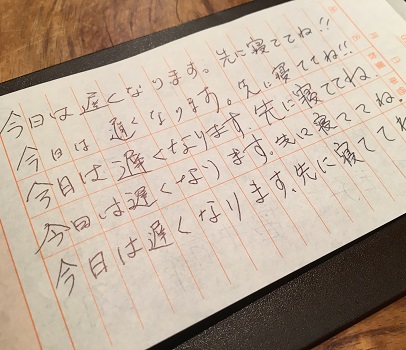 今日は遅くなります。先に寝ててね!!
今日は遅くなります。先に寝ててね!!
今日は遅くなります。先に寝ててね。
今日は遅くなります。先に寝ててね。
今日は遅くなります。先に寝ててね